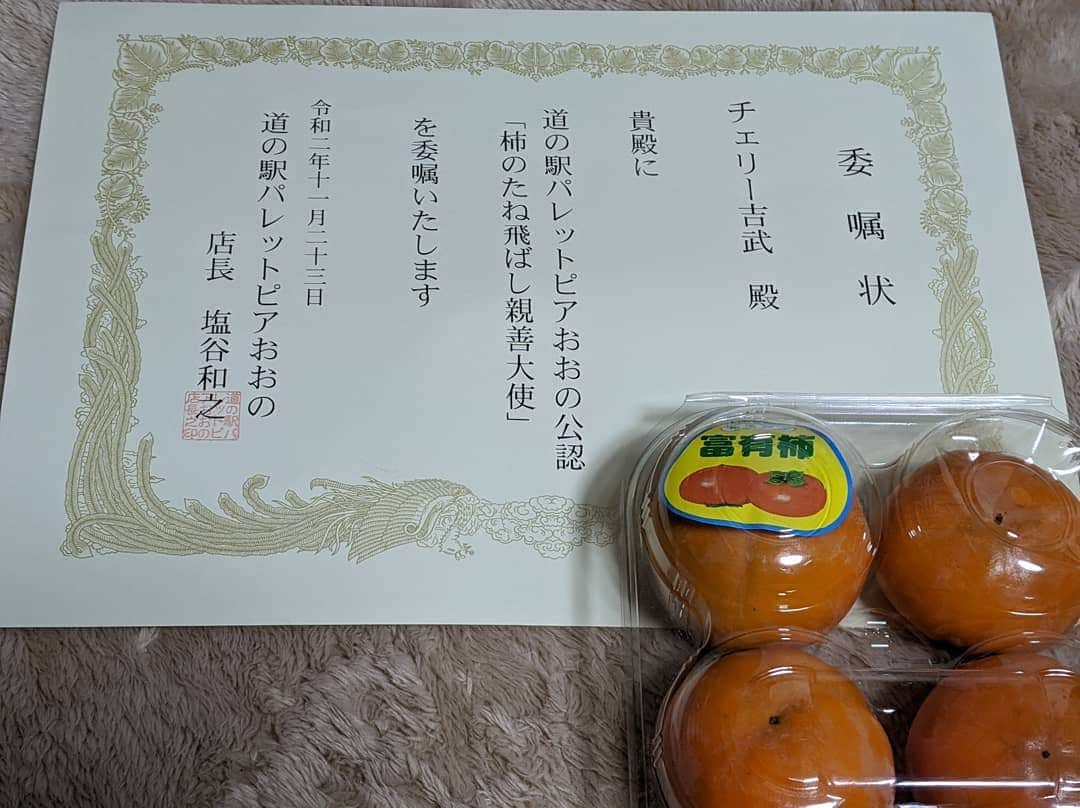 委嘱状
チェリー吉武 殿
貴殿に
道の駅パレットピアおおの公認
「柿のたね飛ばし親善大使」
を委嘱いたします
令和二年十一月二十三日
道の駅パレットピアおおの
店長 塩谷和之
道の駅パ
レットピ
アおおの
店長之印
富有柿